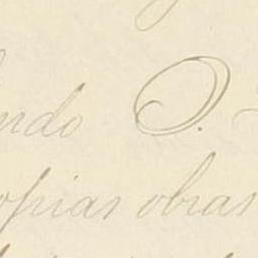 ndo O.
opias obras